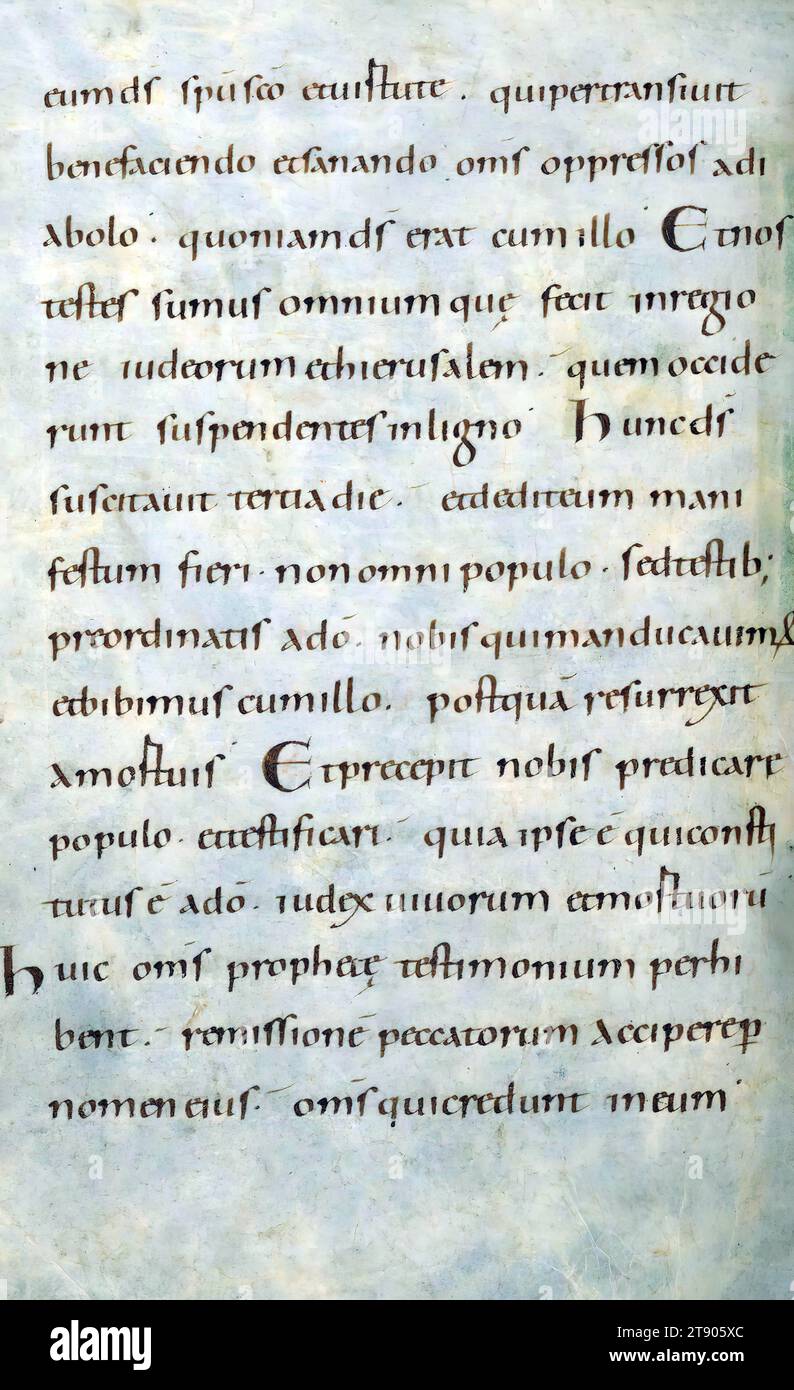 eum ds̄ spūscō etuirtute . quipertransiuit
benefaciendo etsanando om̄s oppressos adi
abolo . quoniamds̄ erat cumillo Etnos
testes sumus omnium quę fecit inregio
ne iudeorum ethierusalem . quem occide
runt suspendentes inligno Huncds̄
suscitauit tertiadie . etdediteum mani
festum fieri . nonomni populo . sedtestib;
preordinatis adō . nobis quimanducauimus
etbibimus cumillo . postquā resurrexit
amortuis Etprecepit nobis predicare
populo . ettestificari . quia ipse ē quiconsti
tutus ē adō . iudex uiuorum etmortuorū
huic om̄s prophetę testimonium perhi
bent . remissionē peccatorum accipere ꝑ
nomen eius . om̄s quicredunt ineum
alamy
alamy
Image ID: 2T905XC
www.alamy.com